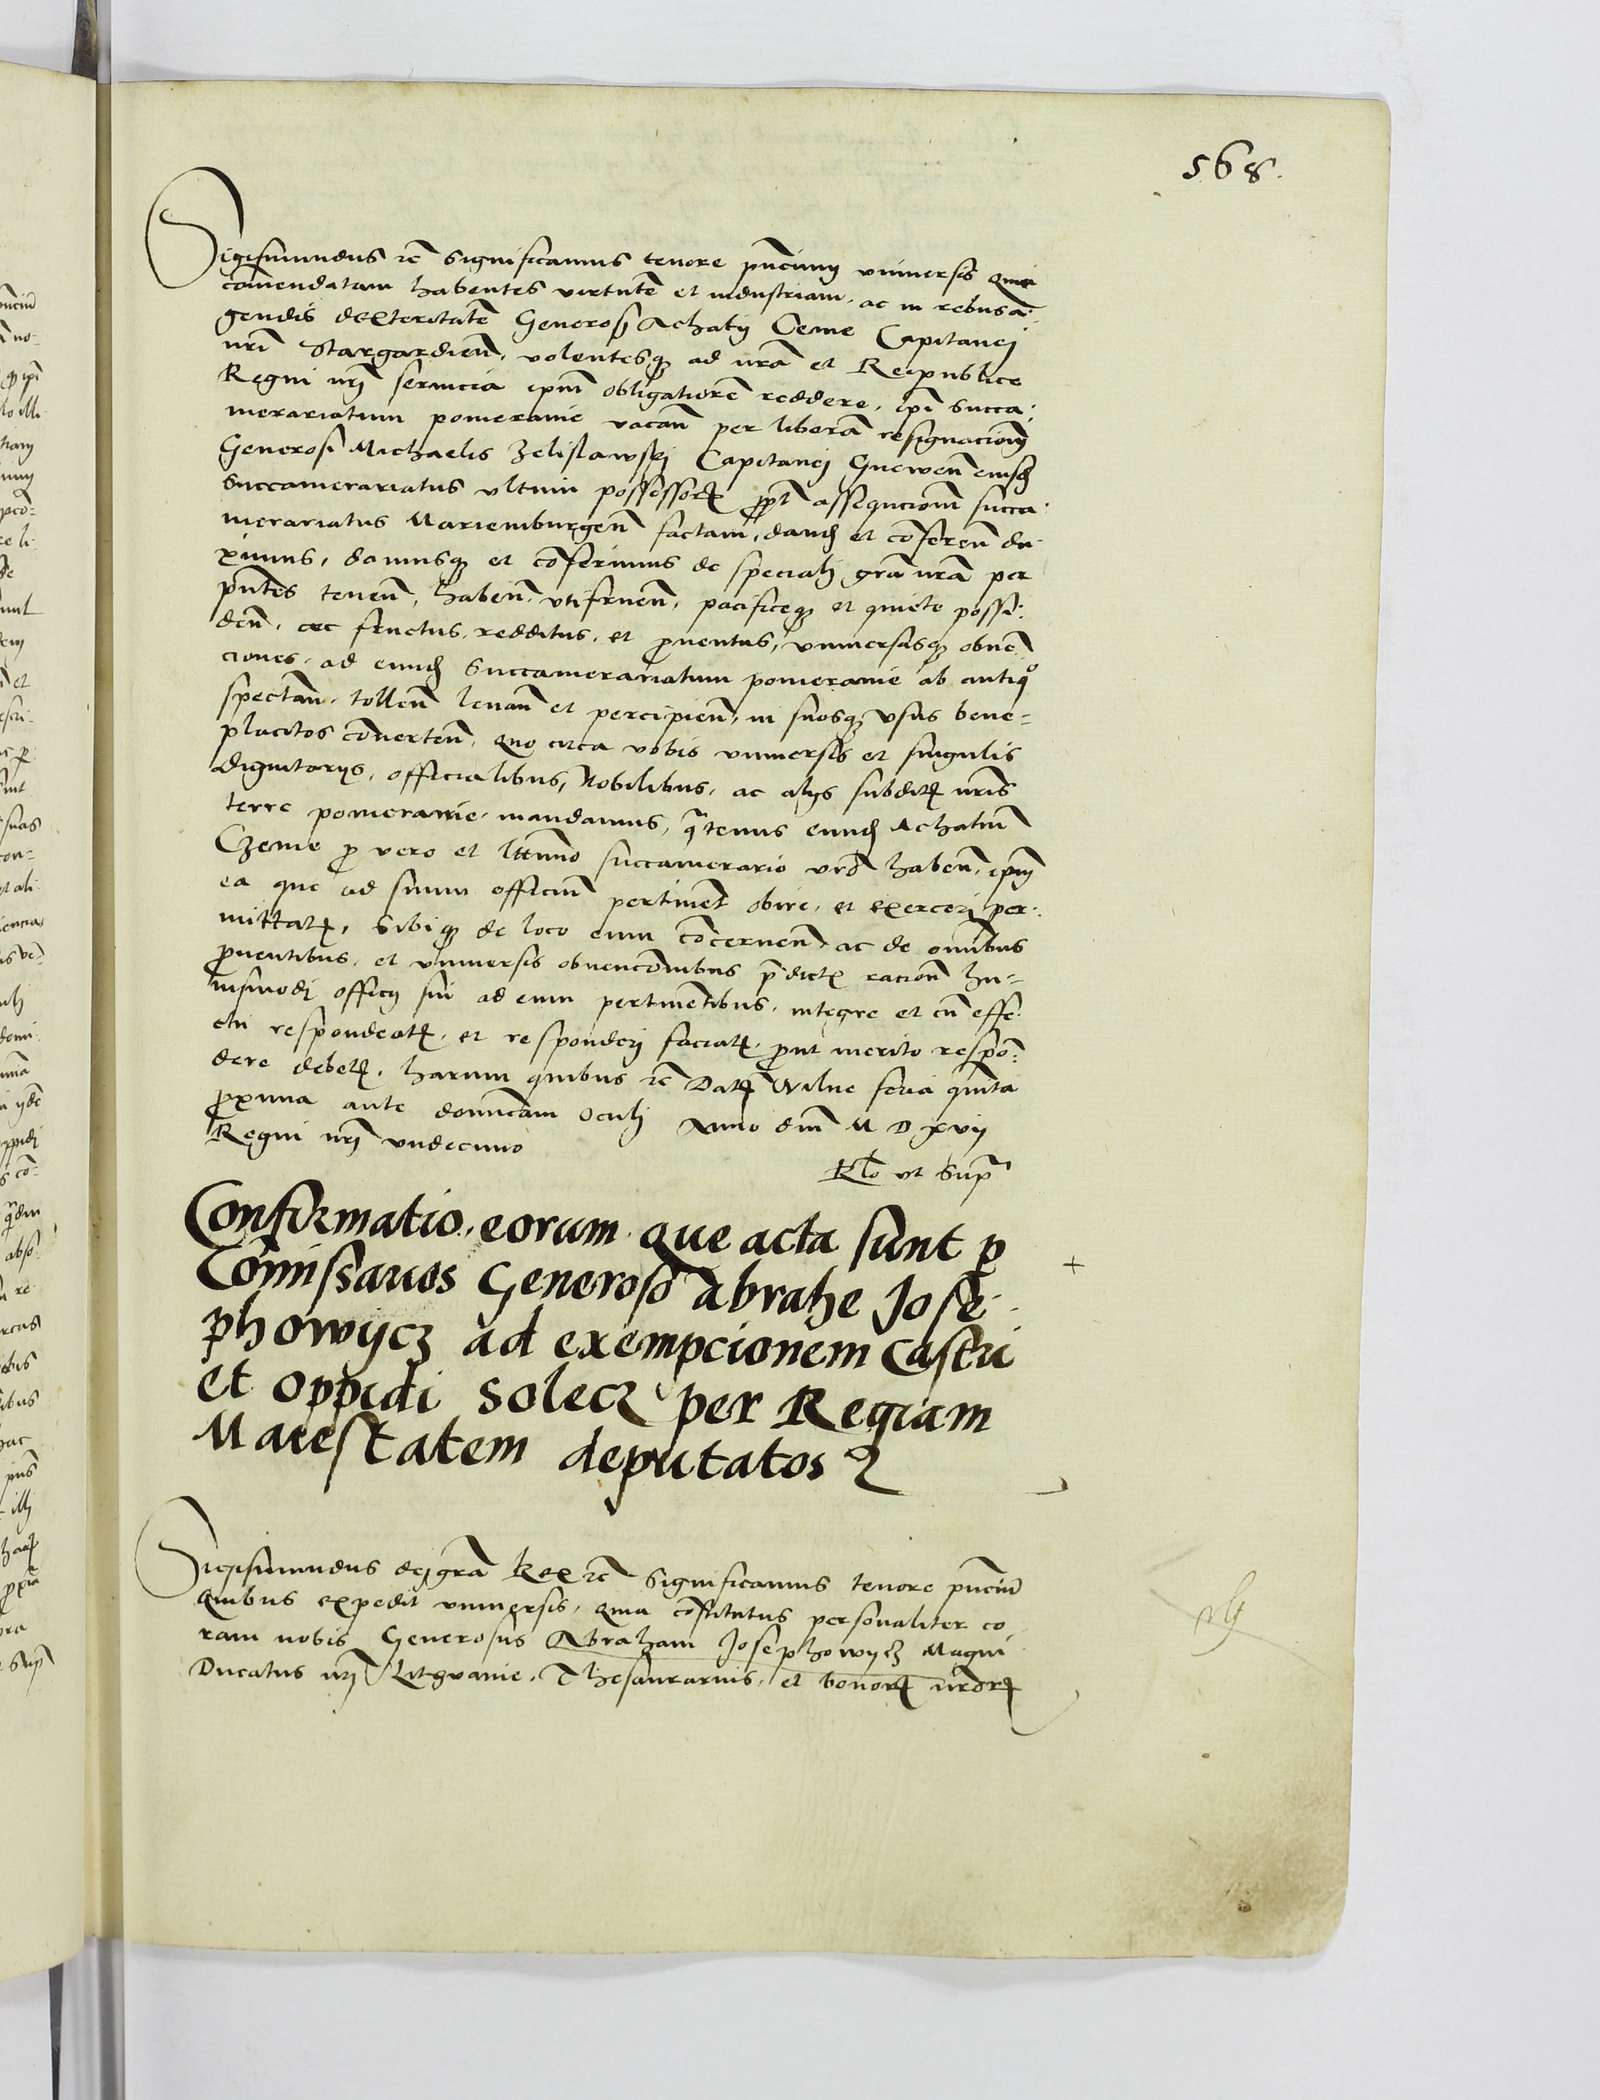 568.
Sigismundus rc̃ Significamus tenore pñcium vniuersis Quia
comendatam habentes virtutẽ et industriam, ac in rebus a-
gendis dexteritatẽ Generosi Achatij Ceme Capitanej
nrĩ Stargardieñ, volentesq3 ad nrã et Reipublice
Regni nrj seruicia ipm̃ obligatiorẽ reddere, ipĩ Succa-
merariatum pomeranie vacañ per liberã resignacionẽ
Generosi Michaelis Zelislawskj Capitanej Gneweñ eiusd̃
Succamerariatus vltimi possessorꝭ ꝓpt̃ assequcionẽ succa-
merariatus Mariemburgeñ factam, dand̃ et cõfereñ du-
ximus, damusq3 et cõferimus de specialj grã nrã per
pñtes teneñ, habeñ, vtifrueñ, pacificeq3 et quiete possi-
deñ, ac fructus, redditus, et ꝓuentus, vniuersasq3 obuẽ-
ciones, ad eund̃ Succamerariatum pomeranie ab antiqᵒ
spectañ, tolleñ leuañ et percipieñ, in suosq3 vsus bene-
placitos cõuerteñ, Quo circa vobis vniuersis et singulis
dignitarijs, officialibus, Nobilibus, ac alijs subditꝭ nrĩs
terre pomeranie mandamus, qᵃtenus eund̃ Achatiũ
Czeme ꝓ vero et lttimo succamerario vrõ habeñ, ipm̃
ea que ad suum officiũ pertinẽt obire, et exercerj per-
mittatꝭ, Sibiq3 de loco eum cõcerneñ ac de omĩbus
ꝓuentibus, et vniuersis obuencõnibus p̃dictꝭ racioñ hu-
iusmodj officij sui ad eum pertinẽtibus, integre et cũ effe-
ctu respondeatꝭ, et responderj faciatꝭ ꝓut merito respõ-
dere debetꝭ, harum quibus rc̃ Datꝭ Wilne feria quinta
ꝓxima ante domĩcam Oculj Anno dnĩ M D xvij
Regni nrj vndecimo
Rl̃o vt Supᵃ
Confirmatio eorum que acta sunt ꝑ
Com̃issarios Generoso abrahe Jose-
phowijcz ad exempcionem Castri
et Oppidi Solecz per Regiam
Maiestatem deputatos
Sigismundus dej grã Rex rc̃ Significamus tenore pñciũ
Quibus expedit vniuersis, Quia cõstitutus personaliter co-
ram nobis Generosus Abraham Josephowijcz Magni
Ducatus nrj Litguanie, Thesaurarius, et bonorꝭ nrõrꝭ